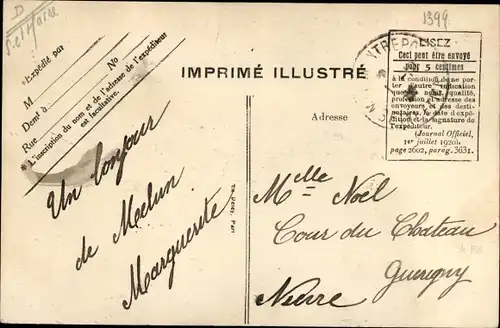 D
1399
Expédié par
M No
Demt à
Rue
* L'inscription du nom et de l'adresse de l'expéditeur
est facultative.
IMPRIMÉ ILLUSTRÉ
LISEZ
Ceci peut être envoyé
pour 5 centimes
à la condition de ne por-
ter d'autre indication
que le nom, qualité,
profession et adresse des
envoyeurs et des desti-
nataires, la date d'expé-
dition et la signature de
l'expéditeur.
(Journal Officiel,
1er juillet 1920)
page 2602, parag. 3631.
Adresse
Un bonjour
de Melun
Marguerite
Melle Noël
Cour du Chateau
Guerigny
Nièvre